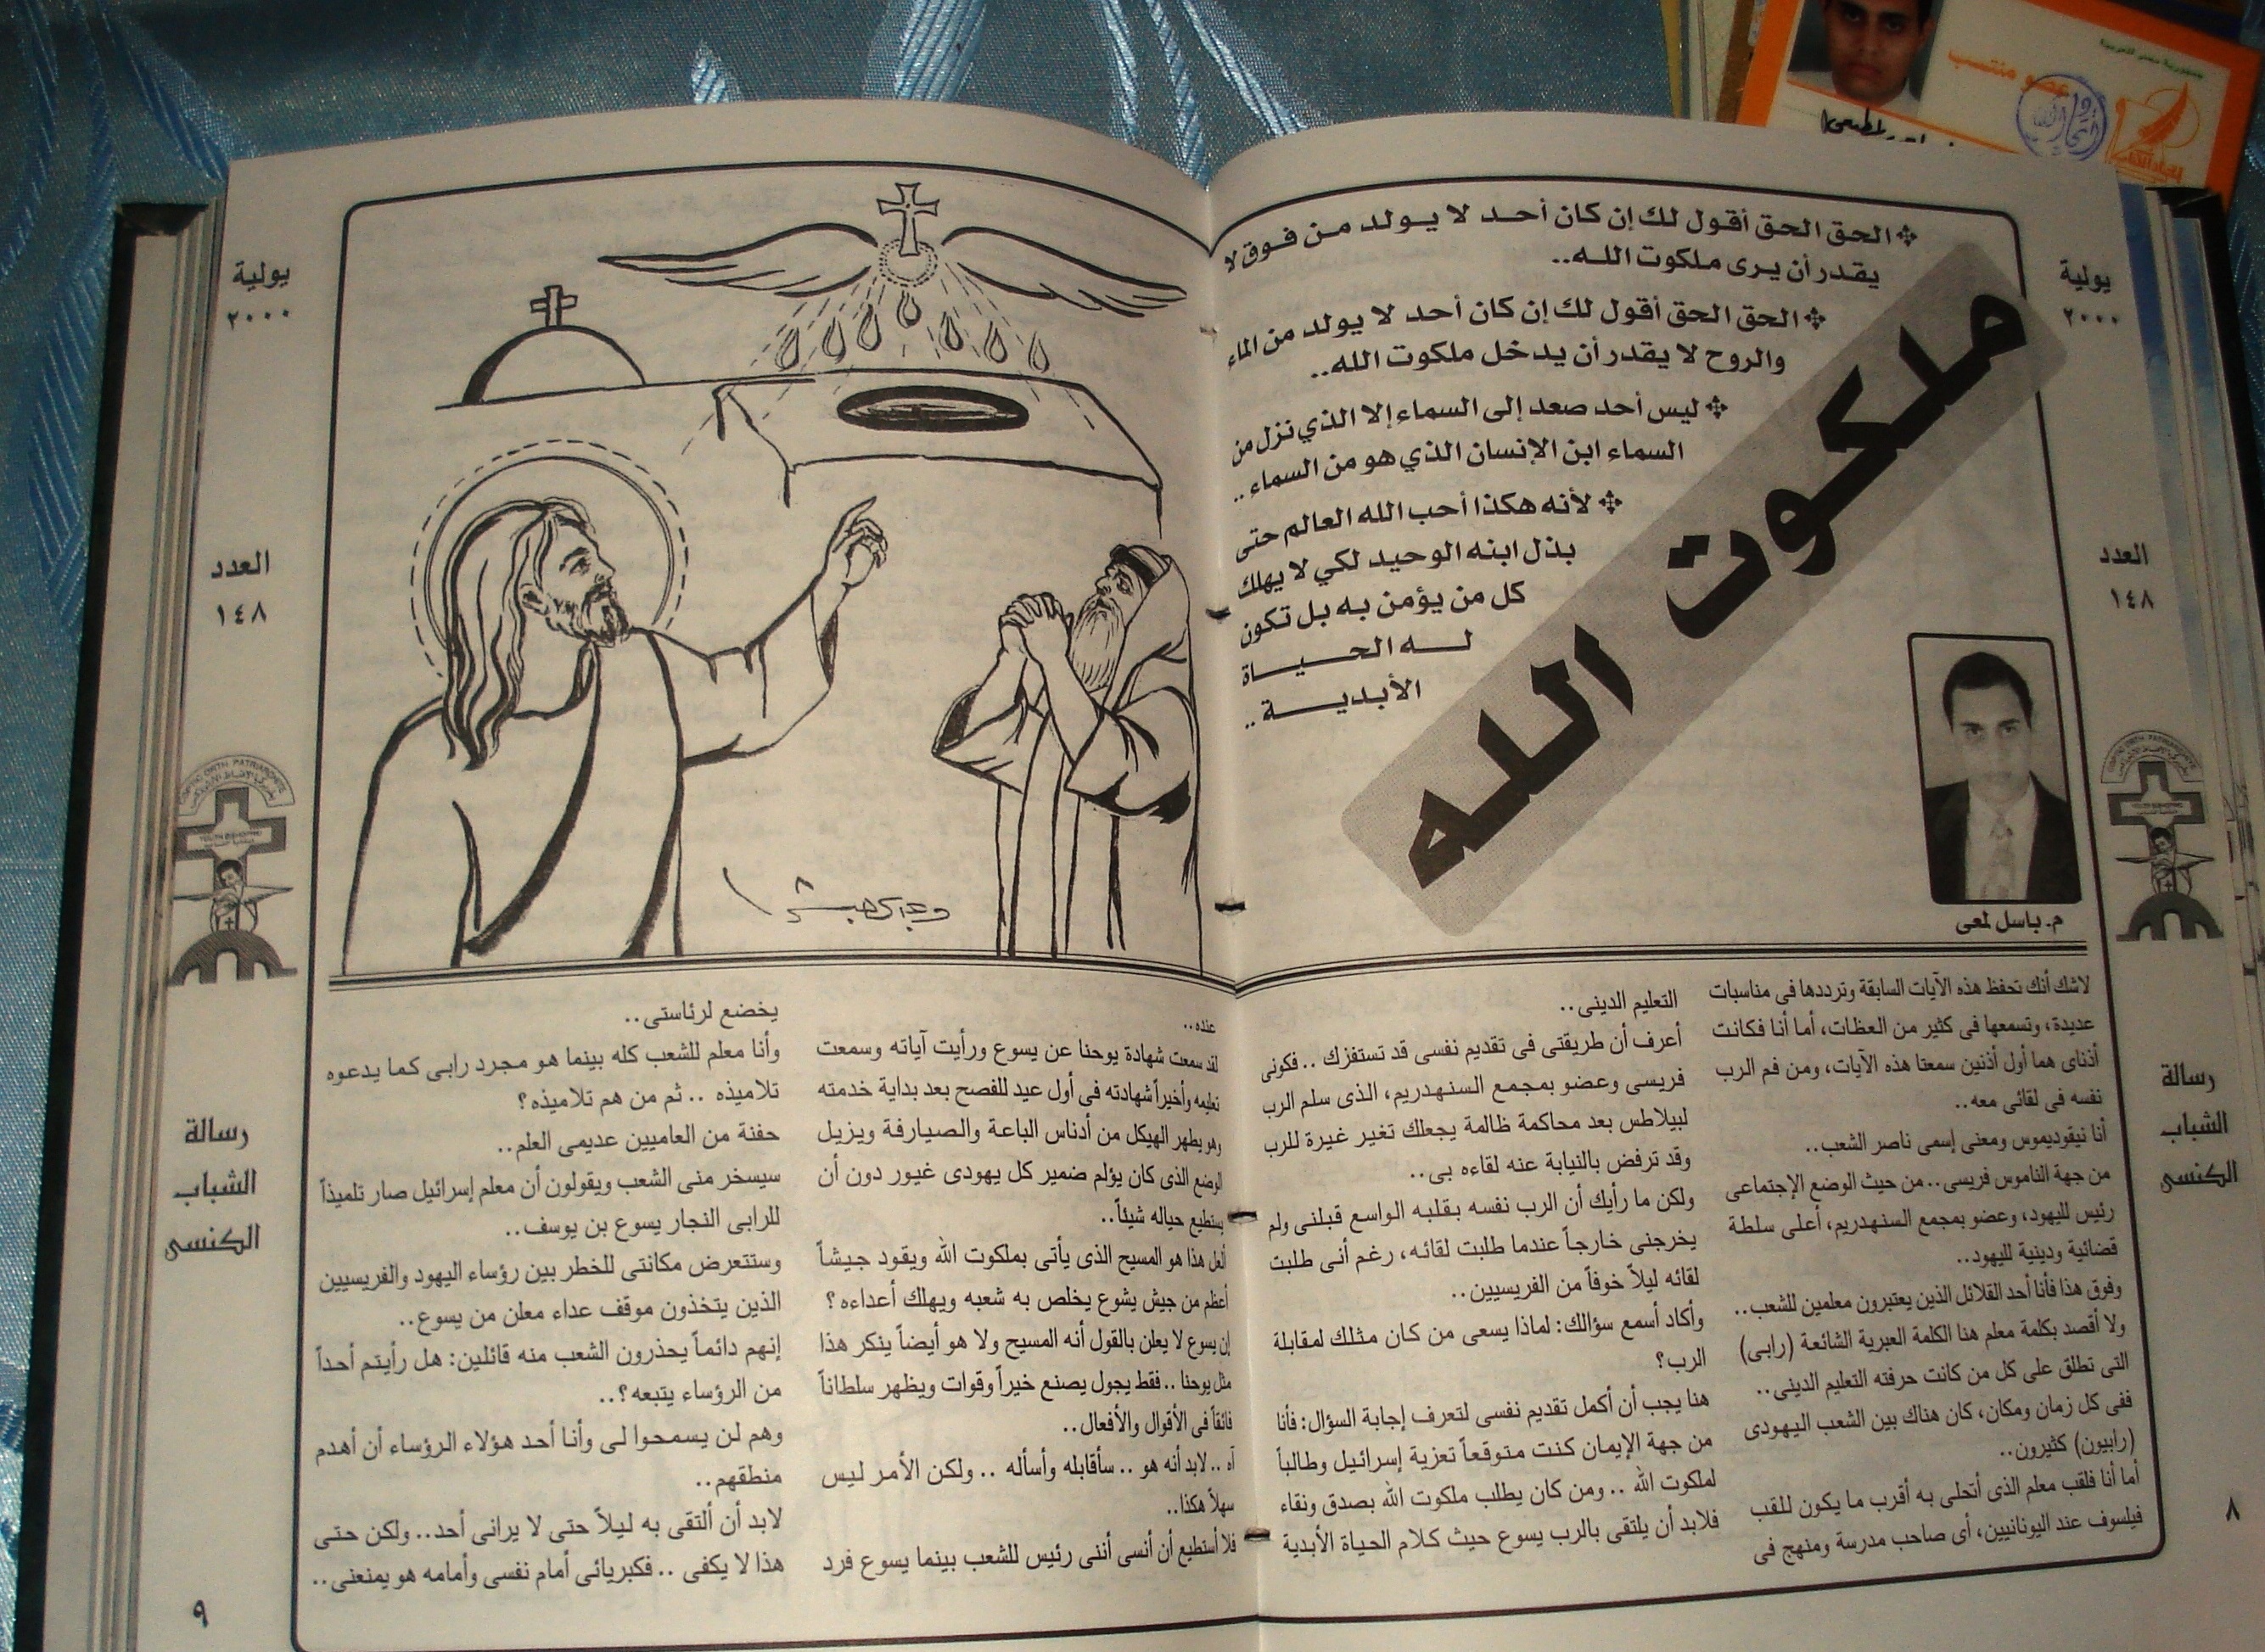 يولية
٢٠٠٠
العدد
١٤٨
COPTIC ORTH PATRIARCHATE
YOUTH BISHOPRIC
رسالة
الشباب
الكنسى
٨
✥ الحق الحق أقول لك إن كان أحد لا يولد من فوق لا
يقدر أن يرى ملكوت الله..
✥ الحق الحق أقول لك إن كان أحد لا يولد من الماء
والروح لا يقدر أن يدخل ملكوت الله..
✥ ليس أحد صعد إلى السماء إلا الذي نزل من
السماء ابن الإنسان الذي هو من السماء..
✥ لأنه هكذا أحب الله العالم حتى
بذل ابنه الوحيد لكي لا يهلك
كل من يؤمن به بل تكون
له الحياة
الأبدية..
ملكوت الله
م. باسل لمعى
لاشك أنك تحفظ هذه الآيات السابقة وترددها فى مناسبات
عديدة، وتسمعها فى كثير من العظات، أما أنا فكانت
أذناى هما أول أذنين سمعتا هذه الآيات، ومن فم الرب
نفسه فى لقائى معه..
أنا نيقوديموس ومعنى إسمى ناصر الشعب..
من جهة الناموس فريسى.. من حيث الوضع الإجتماعى
رئيس لليهود، وعضو بمجمع السنهدريم، أعلى سلطة
قضائية ودينية لليهود..
وفوق هذا فأنا أحد القلائل الذين يعتبرون معلمين للشعب..
ولا أقصد بكلمة معلم هنا الكلمة العبرية الشائعة (رابى)
التى تطلق على كل من كانت حرفته التعليم الدينى..
ففى كل زمان ومكان، كان هناك بين الشعب اليهودى
(رابيون) كثيرون..
أما أنا فلقب معلم الذى أتحلى به أقرب ما يكون للقب
فيلسوف عند اليونانيين، أى صاحب مدرسة ومنهج فى
التعليم الدينى..
أعرف أن طريقتى فى تقديم نفسى قد تستفزك .. فكونى
فريسى وعضو بمجمع السنهدريم، الذى سلم الرب
لبيلاطس بعد محاكمة ظالمة يجعلك تغير غيرة للرب
وقد ترفض بالنيابة عنه لقاءه بى..
ولكن ما رأيك أن الرب نفسه بقلبه الواسع قبلنى ولم
يخرجنى خارجاً عندما طلبت لقائه، رغم أنى طلبت
لقائه ليلاً خوفاً من الفريسيين..
وأكاد أسمع سؤالك: لماذا يسعى من كان مثلك لمقابلة
الرب؟
هنا يجب أن أكمل تقديم نفسى لتعرف إجابة السؤال: فأنا
من جهة الإيمان كنت متوقعاً تعزية إسرائيل وطالباً
لملكوت الله .. ومن كان يطلب ملكوت الله بصدق ونقاء
فلابد أن يلتقى بالرب يسوع حيث كلام الحياة الأبدية
عنده..
لقد سمعت شهادة يوحنا عن يسوع ورأيت آياته وسمعت
تعليمه وأخيراً شهادته فى أول عيد للفصح بعد بداية خدمته
وهو يطهر الهيكل من أدناس الباعة والصيارفة ويزيل
الوضع الذى كان يؤلم ضمير كل يهودى غيور دون أن
يستطيع حياله شيئاً..
ألعل هذا هو المسيح الذى يأتى بملكوت الله ويقود جيشاً
أعظم من جيش يشوع يخلص به شعبه ويهلك أعداءه؟
إن يسوع لا يعلن بالقول أنه المسيح ولا هو أيضاً ينكر هذا
مثل يوحنا .. فقط يجول يصنع خيراً وقوات ويظهر سلطاناً
فائقاً فى الأقوال والأفعال..
آه .. لابد أنه هو .. سأقابله وأسأله .. ولكن الأمر ليس
سهلاً هكذا..
فلا أستطيع أن أنسى أننى رئيس للشعب بينما يسوع فرد
يخضع لرئاستى..
وأنا معلم للشعب كله بينما هو مجرد رابى كما يدعوه
تلاميذه .. ثم من هم تلاميذه؟
حفنة من العاميين عديمى العلم..
سيسخر منى الشعب ويقولون أن معلم إسرائيل صار تلميذاً
للرابى النجار يسوع بن يوسف..
وستتعرض مكانتى للخطر بين رؤساء اليهود والفريسيين
الذين يتخذون موقف عداء معلن من يسوع..
إنهم دائماً يحذرون الشعب منه قائلين: هل رأيتم أحداً
من الرؤساء يتبعه؟..
وهم لن يسمحوا لى وأنا أحد هؤلاء الرؤساء أن أهدم
منطقهم..
لابد أن ألتقى به ليلاً حتى لا يرانى أحد.. ولكن حتى
هذا لا يكفى .. فكبريائى أمام نفسى وأمامه هو يمنعنى..
يولية
٢٠٠٠
العدد
١٤٨
COPTIC ORTH PATRIARCHATE
YOUTH BISHOPRIC
رسالة
الشباب
الكنسى
٩
عضو منتسب